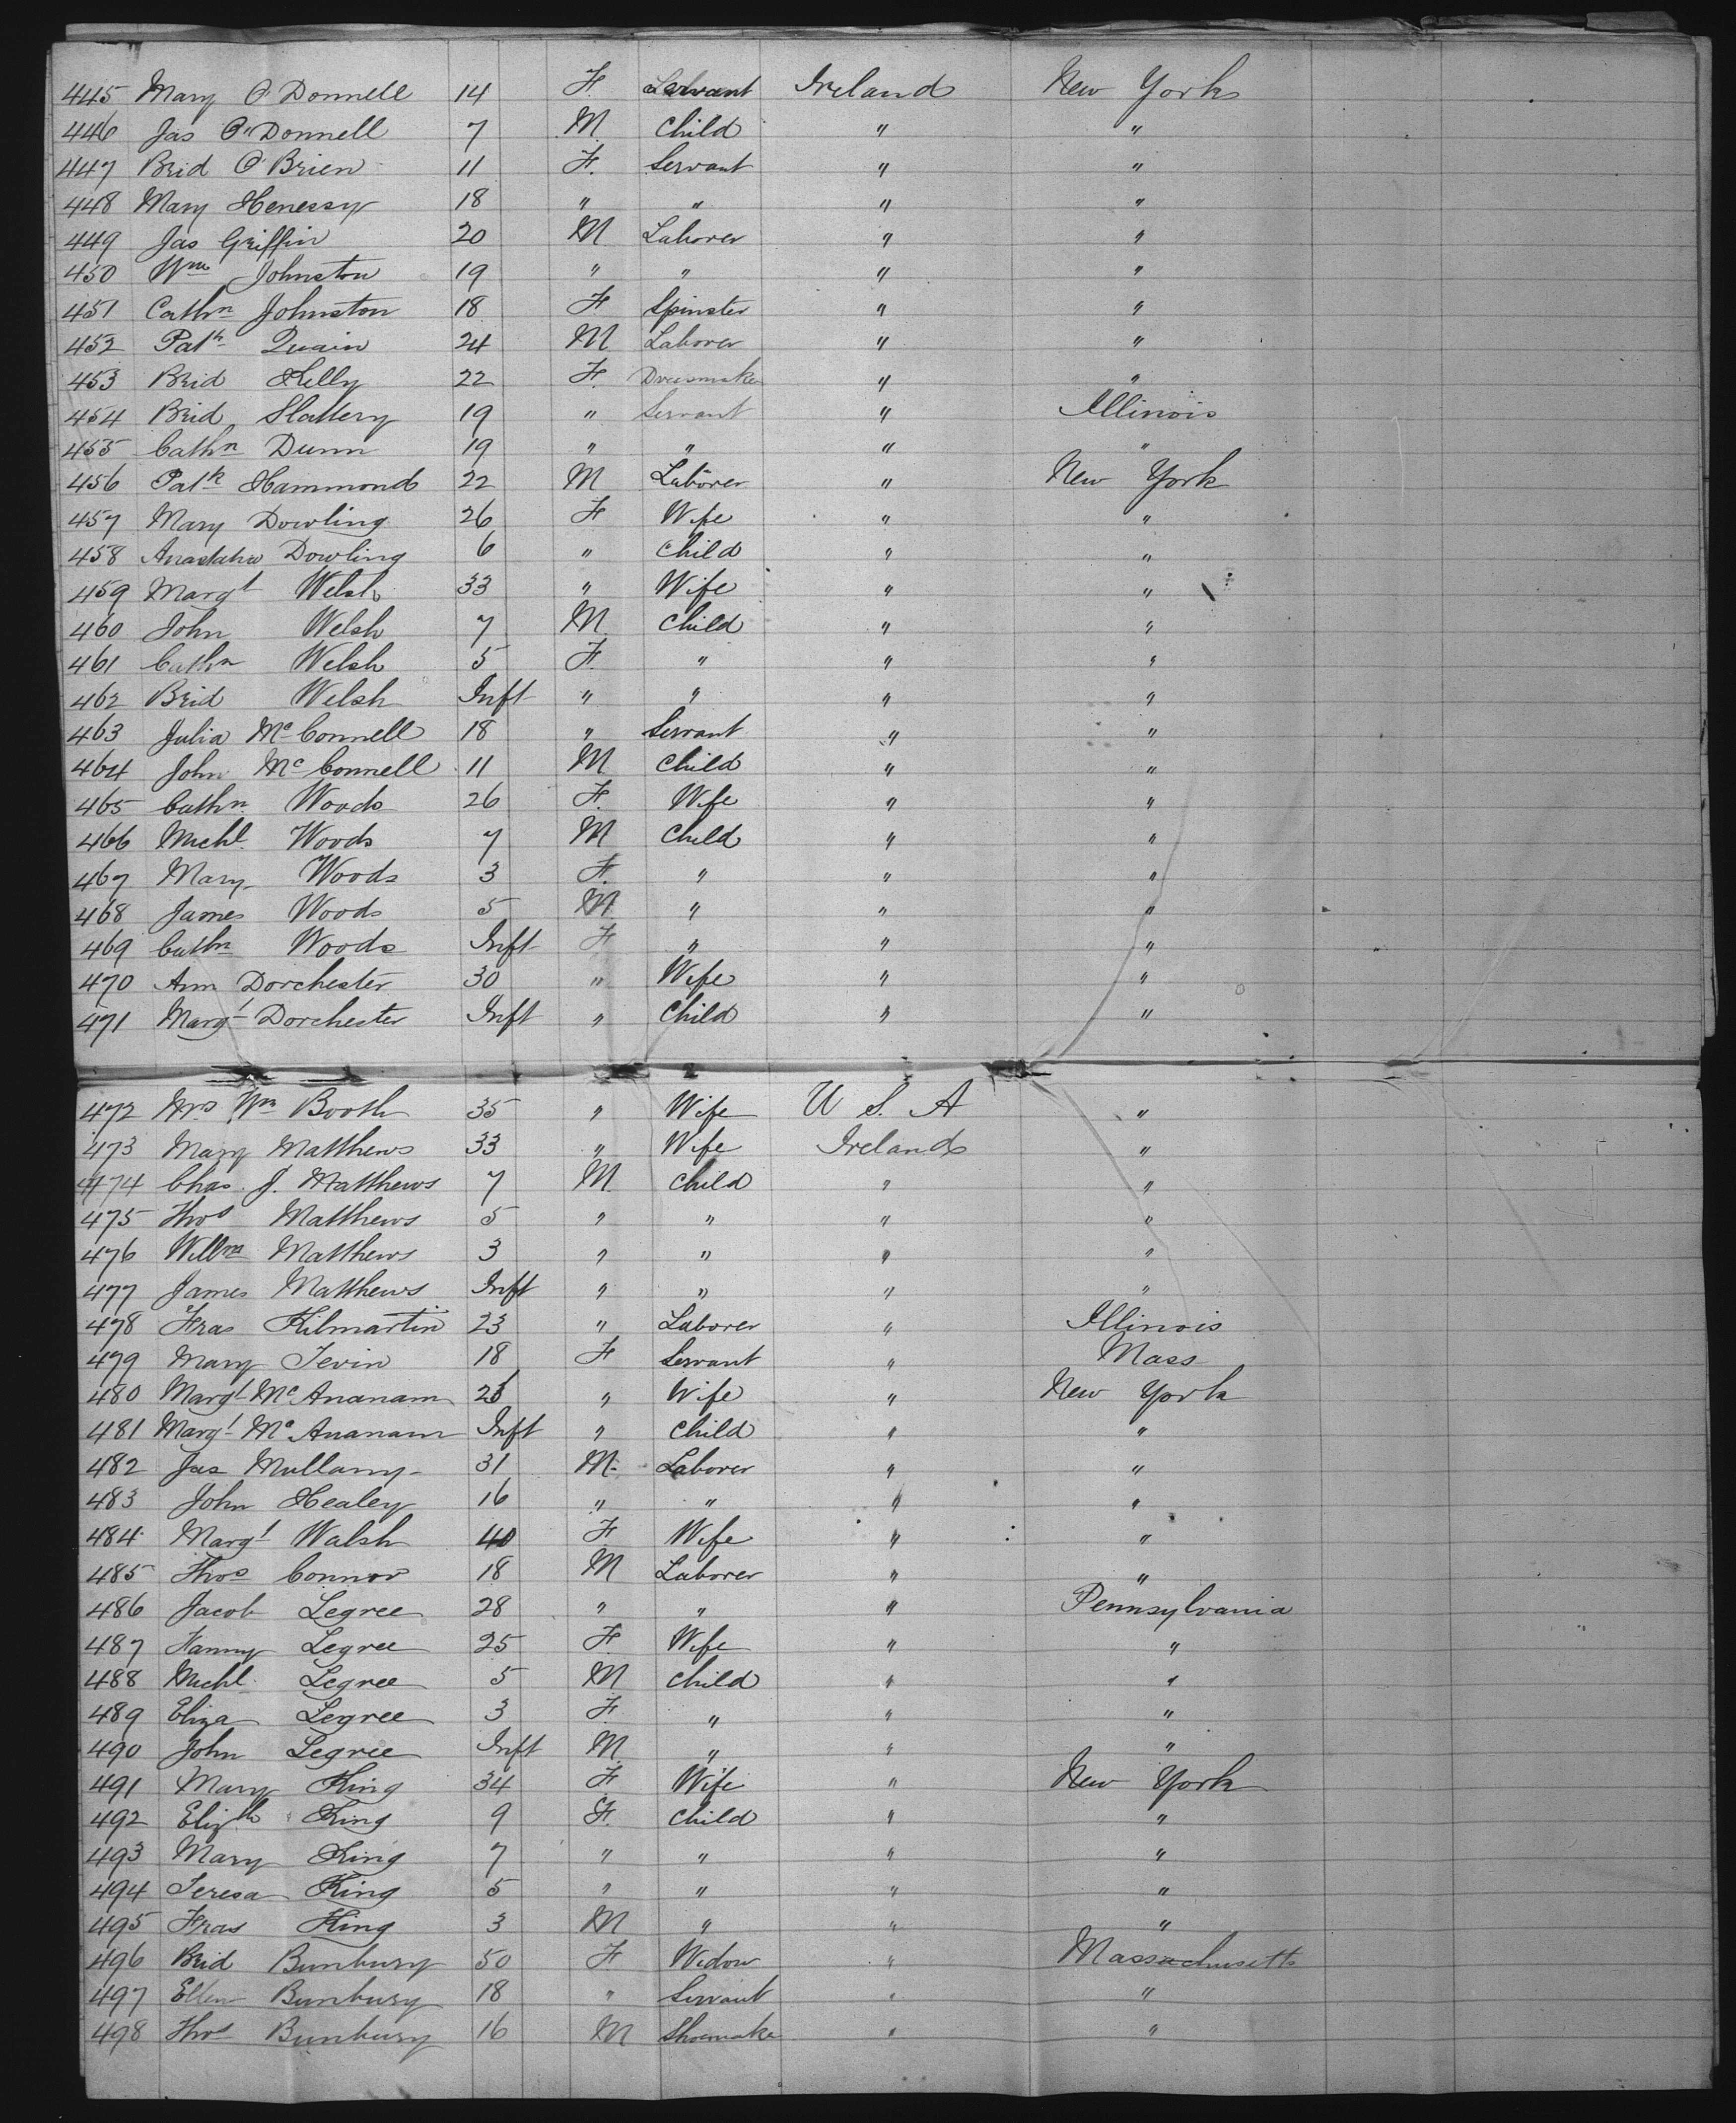 445 Mary O'Donnell 14 F. Servant Ireland New York
446 Jas O'Donnell 7 M Child " "
447 Brid O'Brien 11 F. Servant " "
448 Mary Henessy 18 " " " "
449 Jas Griffin 20 M Laborer " "
450 Wm Johnston 19 " " " "
451 Cathn Johnston 18 F Spinster " "
452 Patk Quain 24 M Laborer " "
453 Brid Kelly 22 F. Dressmake " "
454 Brid Slattery 19 " Servant " Illinois
455 Cathn Dunn 19 " " " "
456 Patk Hammond 22 M Laborer " New York
457 Mary Dowling 26 F Wife " "
458 Anastatia Dowling 6 " Child " "
459 Margt Welsh 33 " Wife " "
460 John Welsh 7 M Child " "
461 Cathn Welsh 5 F. " " "
462 Brid Welsh Inft " " " "
463 Julia McConnell 18 " Servant " "
464 John McConnell 11 M Child " "
465 Cathn Woods 26 F. Wife " "
466 Michl. Woods 7 M Child " "
467 Mary Woods 3 F. " " "
468 James Woods 5 M " " "
469 Cathn Woods Inft F " " "
470 Ann Dorchester 30 " Wife " "
471 Margt Dorchester Inft " Child " "
472 Mrs Wm Booth 35 " Wife U. S. A "
473 Mary Matthews 33 " Wife Ireland "
474 Chas. J. Matthews 7 M Child " "
475 Thos Matthews 5 " " " "
476 Willm Matthews 3 " " " "
477 James Matthews Inft " " " "
478 Fras Kilmartin 23 " Laborer " Illinois
479 Mary Tevin 18 F Servant " Mass
480 Margt McAnanam " Wife " New York
481 Margt McAnanam Inft " Child " "
482 Jas Mullany 31 M. Laborer " "
483 John Healey 16 " " " "
484 Margt Walsh 40 F Wife " "
485 Thos Connor 18 M Laborer " "
486 Jacob Legree 28 " " " Pennsylvania
487 Fanny Legree 25 F. Wife " "
488 Michl. Legree 5 M Child " "
489 Eliza Legree 3 F. " " "
490 John Legree Inft M. " " "
491 Mary King 34 F Wife " New York
492 Elizth King 9 F. Child " "
493 Mary King 7 " " " "
494 Teresa King 5 " " " "
495 Fras King 3 M " " "
496 Brid Bunbury 50 F. Widow " Massachusetts
497 Ellen Bunbury 18 " Servant " "
498 Thos Bunbury 16 M Shoemake " "